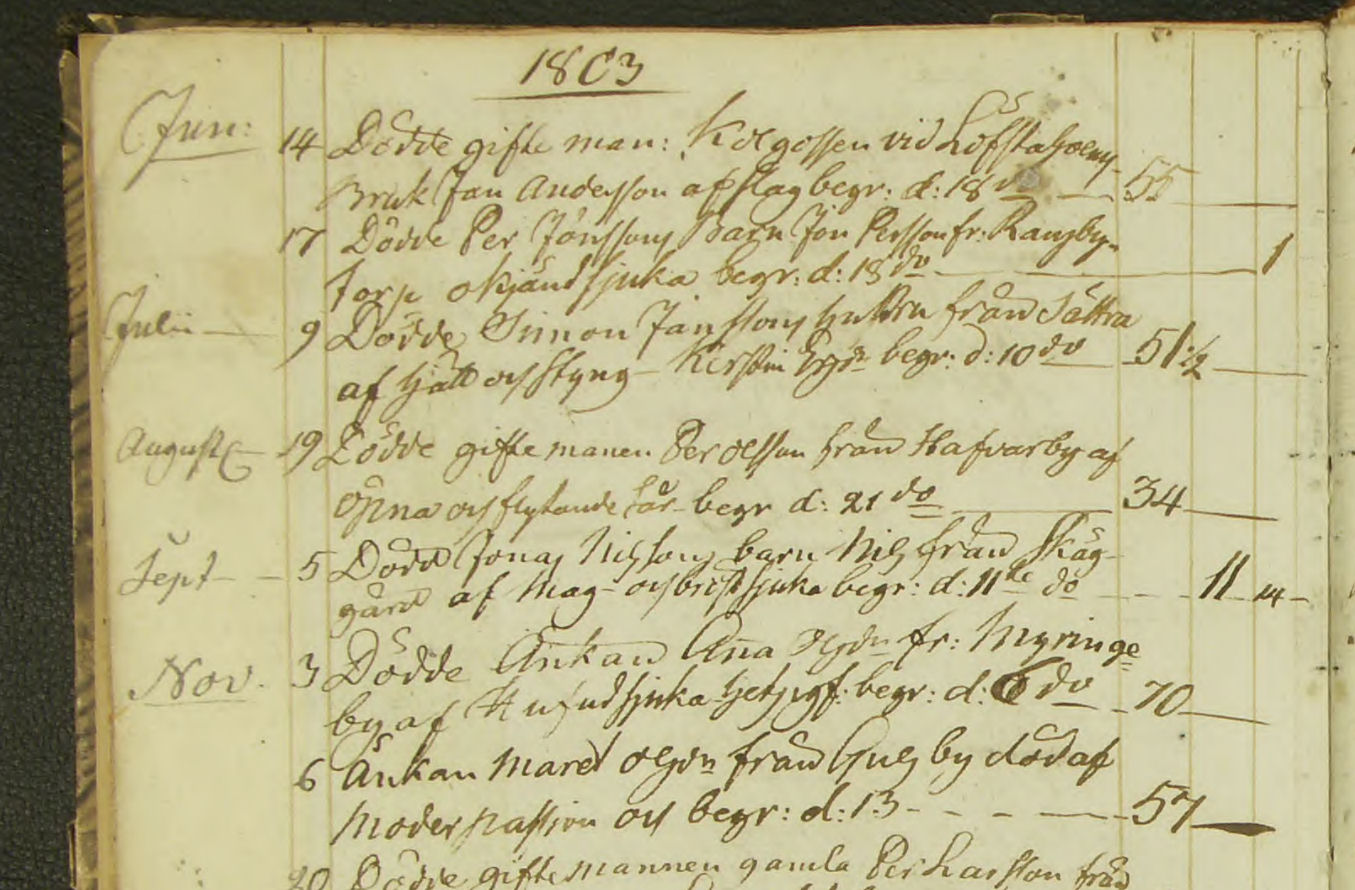 1803
Jun: 14 Dödde gifte man: Kolgossen vid Löfstaholms
Bruk Jan Andersson af slag begr: d: 18 do 55
17 Dödde Per Jönssons Barn Jon Persson fr: Ransby-
torp okjänd sjuka begr: d: 18 do 1
Julii 9 Dödde Simon Janssons hustru från Sättra
af håll och styng Kerstin begr: d: 10 do 51 1/2
August 19 Dödde gifte manen Per Olsson från Hafvarby af
öpna och flytande sår begr d: 21 do 34
Sept 5 Dödd Jonas Nilssons barn Nils från Skäg-
gård af Mag- och bröstsjuka begr: d: 11te do 11 14
Nov. 3 Dödde Änkan Ana Olsdn fr: Myringe
by af Hufudsjuka begr: d: 6 do 70
6 Änkan Maret Olsdn från Gulsby död af
Moderpassion och begr: d: 13 57
20 Dödde gifte mannen gamla Per Larsson från